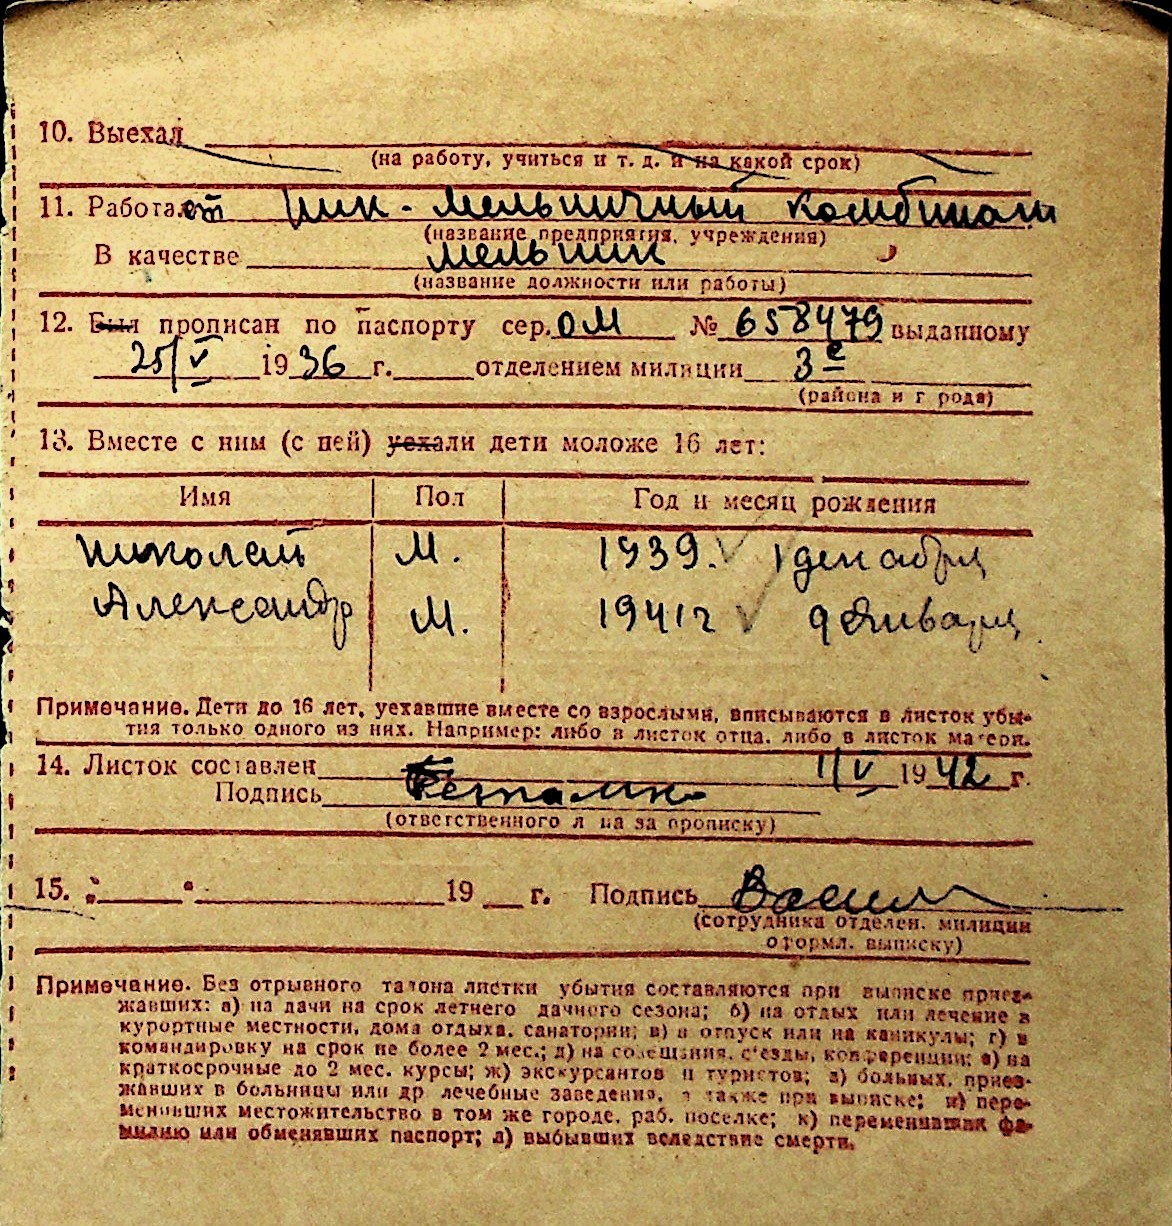 10. Выехал
(на работу, учиться и т. д. и на какой срок)
11. Работает Ник-Мельничный комбинат
(название предприятия, учреждения)
В качестве мельник
(название должности или работы)
12. Был прописан по паспорту сер. ОМ № 658479 выданному
25/V 1936 г. отделением милиции 3е
(района и города)
13. Вместе с ним (с ней) уехали дети моложе 16 лет:
Имя Пол Год и месяц рождения
Николай М. 1939. 1 декабря
Александр М. 1941 г 9 января
Примечание. Дети до 16 лет, уехавшие вместе со взрослыми, вписываются в листок убы-
тия только одного из них. Например: либо в листок отца, либо в листок матери.
14. Листок составлен 1/V 1942 г.
Подпись
(ответственного лица за прописку)
15. „ “ 19 г. Подпись Васил
(сотрудника отделен. милиции
оформл. выписку)
Примечание. Без отрывного талона листки убытия составляются при выписке приез-
жавших: а) на дачи на срок летнего дачного сезона; б) на отдых или лечение в
курортные местности, дома отдыха, санатории; в) в отпуск или на каникулы; г) в
командировку на срок не более 2 мес.; д) на совещания, съезды, конференции; е) на
краткосрочные до 2 мес. курсы; ж) экскурсантов и туристов; з) больных, приез-
жавших в больницы или др лечебные заведения, а также при выписке; и) пере-
менивших местожительство в том же городе, раб. поселке; к) переменивших фа-
милию или обменявших паспорт; л) выбывших вследствие смерти.